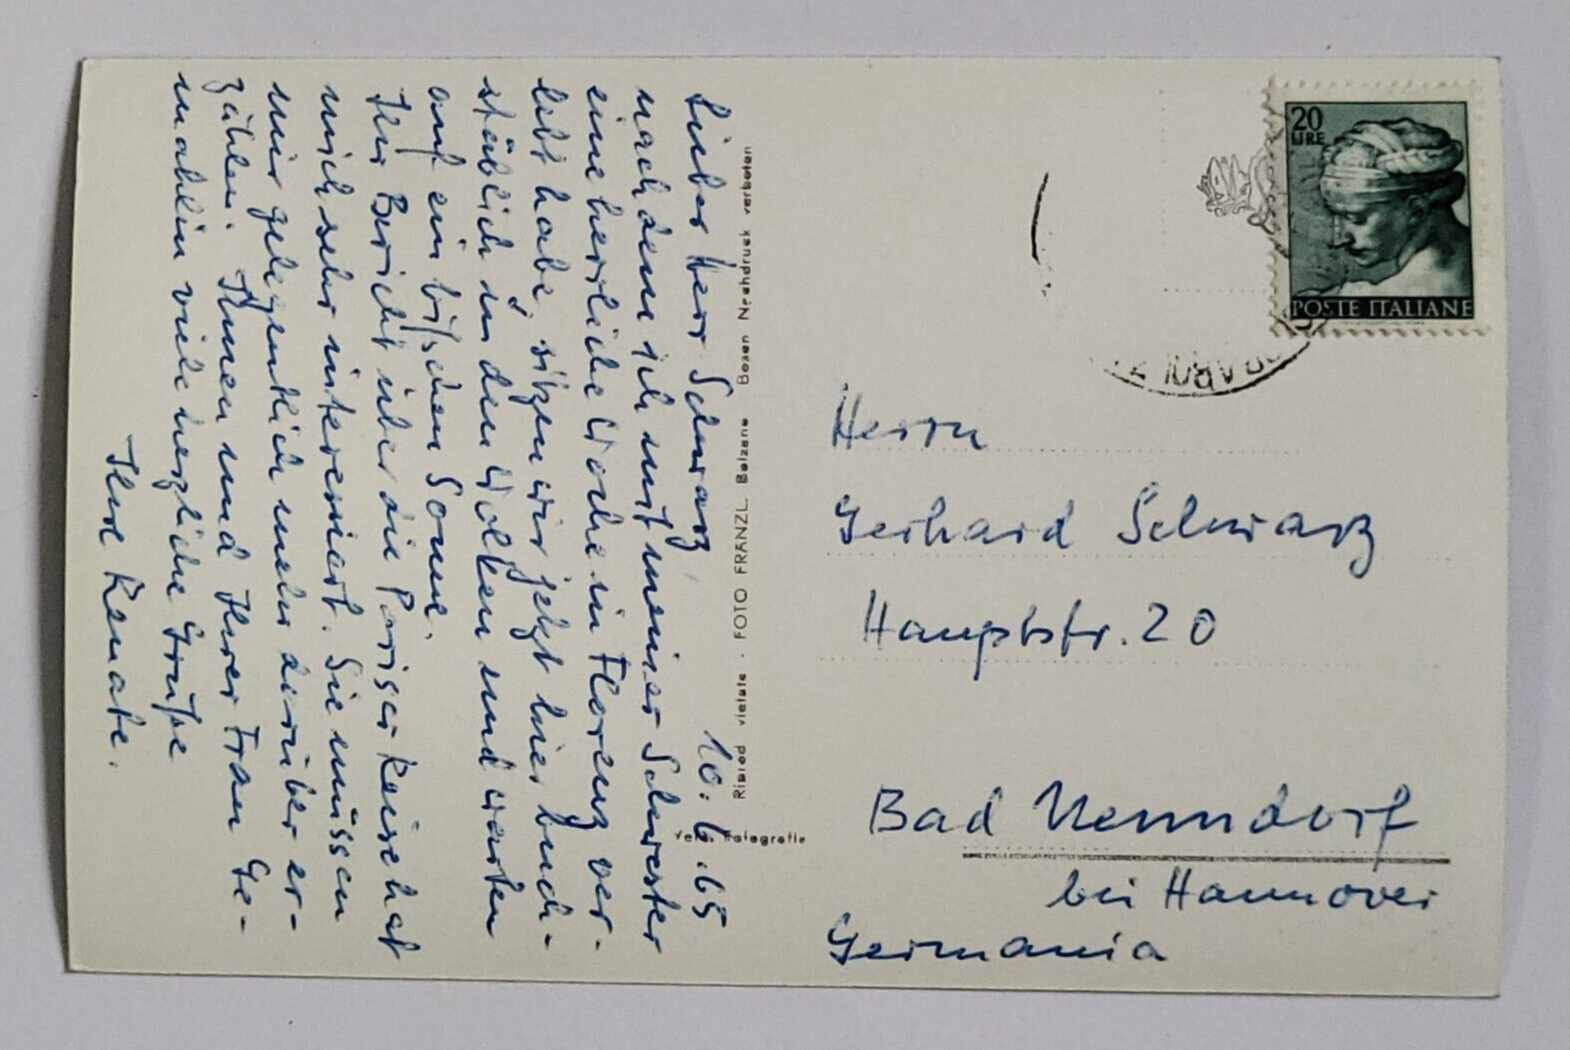 10.6.65
Lieber Herr Schwarz
nachdem ich mit meiner Schwester
eine herrliche Woche in Florenz ver-
lebt habe, sitzen wir jetzt hier buch-
stäblich in den Wolken und warten
auf ein bißchen Sonne.
Ihr Bericht über die Pariser Reise hat
mich sehr interessiert. Sie müssen
mir gelegentlich mehr darüber er-
zählen. Ihnen und Ihrer Frau Ge-
mahlin viele herzliche Grüße
Ihre Renate.
Ripred vietate - FOTO FRÄNZL Bolzano Bozen Nachdruck verboten
Vera Fotografie
20
LIRE
POSTE ITALIANE
Herrn
Gerhard Schwarz
Hauptstr. 20
Bad Nenndorf
bei Hannover
Germania